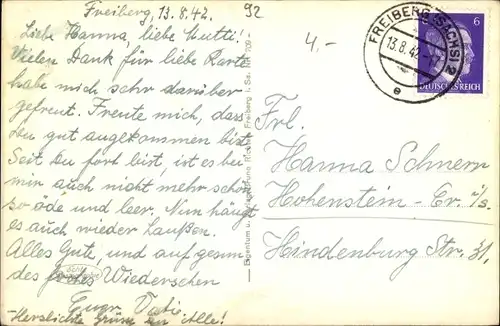 Freiberg, 13.8.42.
92
Liebe Hanna, liebe Mutti!
Vielen Dank für liebe Karte
habe mich sehr darüber
gefreut. Freute mich, dass
Du gut angekommen bist.
Seit Du fort bist, ist es bei
mir auch nicht mehr schön
so öde und leer. Nun hängt
es auch wieder
Alles Gute, und auf gesun
des frohes Wiedersehen
Euer
Herzliche Grüße an Alle!
4,-
FREIBERG (SACHS) 2
13.8.42.-17
e
6
DEUTSCHES REICH
Frl.
Hanna Schnerr
Hohenstein-Er. i/s
Hindenburg Str.
Eigentum u. Freiberg i. Sa. NR 709